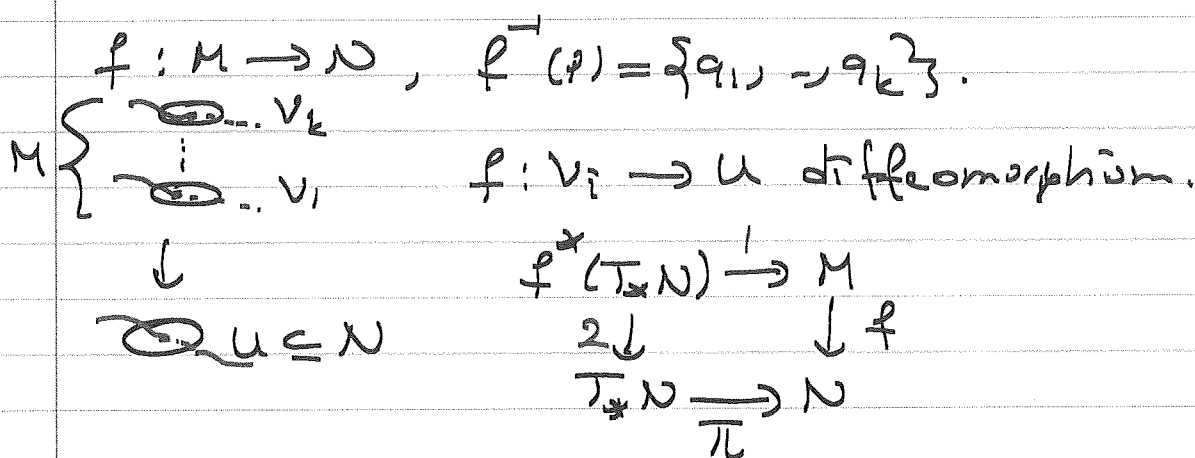 f : M → N , f⁻¹(p) = {q₁, -, q_k}.
M { ... V_k
... V₁ f : Vᵢ → U diffeomorphism.
↓ f*(T_*N) →¹ M
U ⊆ N 2↓ ↓ f
T_*N →_π N